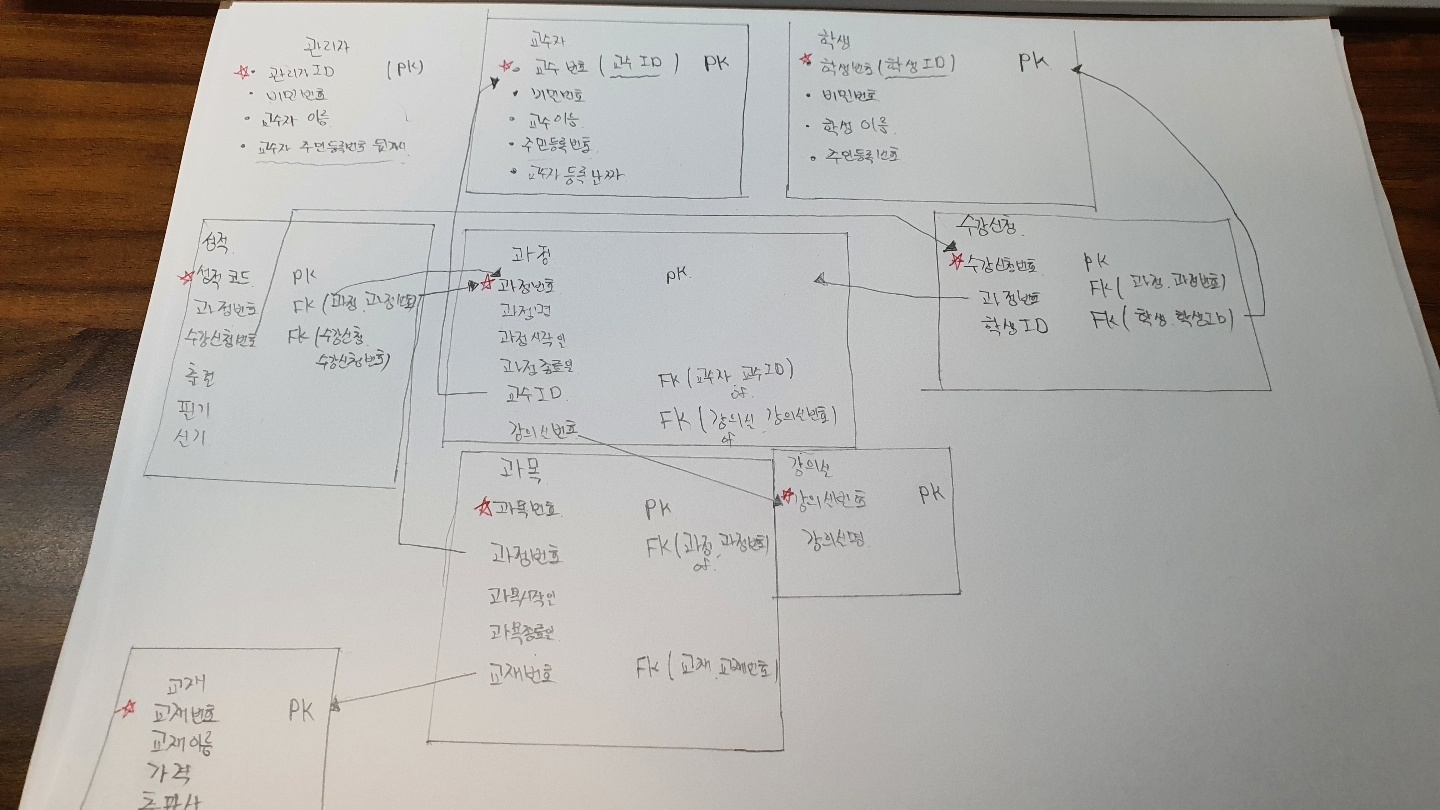 관리자
관리자 ID (PK)
비밀번호
교수자 이름
교수자 주민등록번호 뒷자리
교수자
교수 번호 (교수 ID) PK
비밀번호
교수이름
주민등록번호
교수자 등록 날짜
학생
학생번호 (학생 ID) PK
비밀번호
학생 이름
주민등록번호
성적
성적 코드 PK
과정번호 FK (과정.과정번호)
수강신청번호 FK (수강신청.
수강신청번호)
출결
필기
실기
과정
과정번호 PK
과정명
과정시작일
과정종료일
교수 ID FK (교수자.교수ID)
of
강의실번호 FK (강의실.강의실번호)
of
수강신청
수강신청번호 PK
과정번호 FK (과정.과정번호)
학생 ID FK (학생.학생ID)
과목
과목번호 PK
과정번호 FK (과정.과정번호)
of
과목시작일
과목종료일
교재번호 FK (교재.교재번호)
강의실
강의실번호 PK
강의실명
교재
교재번호 PK
교재이름
가격
출판사